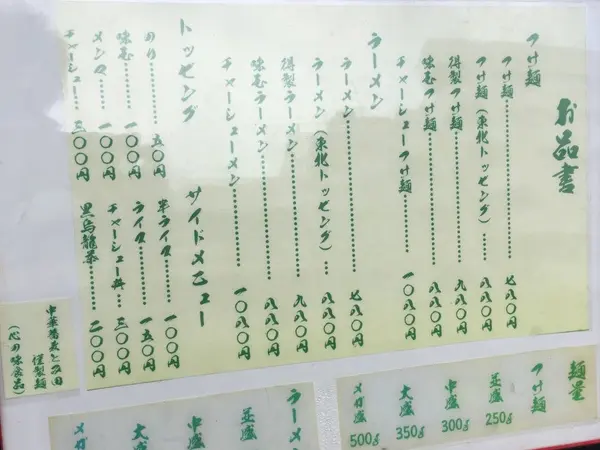 お品書
つけ麺
つけ麺…………七八〇円
つけ麺(東北トッピング)…八八〇円
得製つけ麺………九八〇円
味玉つけ麺………八八〇円
チャーシューつけ麺………一〇八〇円
ラーメン
ラーメン…………七八〇円
ラーメン(東北トッピング)…八八〇円
得製ラーメン………九八〇円
味玉ラーメン………八八〇円
チャーシューメン………一〇八〇円
トッピング
のり……五〇円
味玉……一〇〇円
メンマ……一〇〇円
チャーシュー…三〇〇円
サイドメニュー
半ライス……一〇〇円
ライス……一五〇円
チャーシュー丼…三〇〇円
黒烏龍茶……二〇〇円
麺量
つけ麺
並盛 250g
中盛 300g
大盛 350g
メガ盛 500g
ラーメ
並盛
中盛
大盛
メガ
謹製麺
(心の味食品)